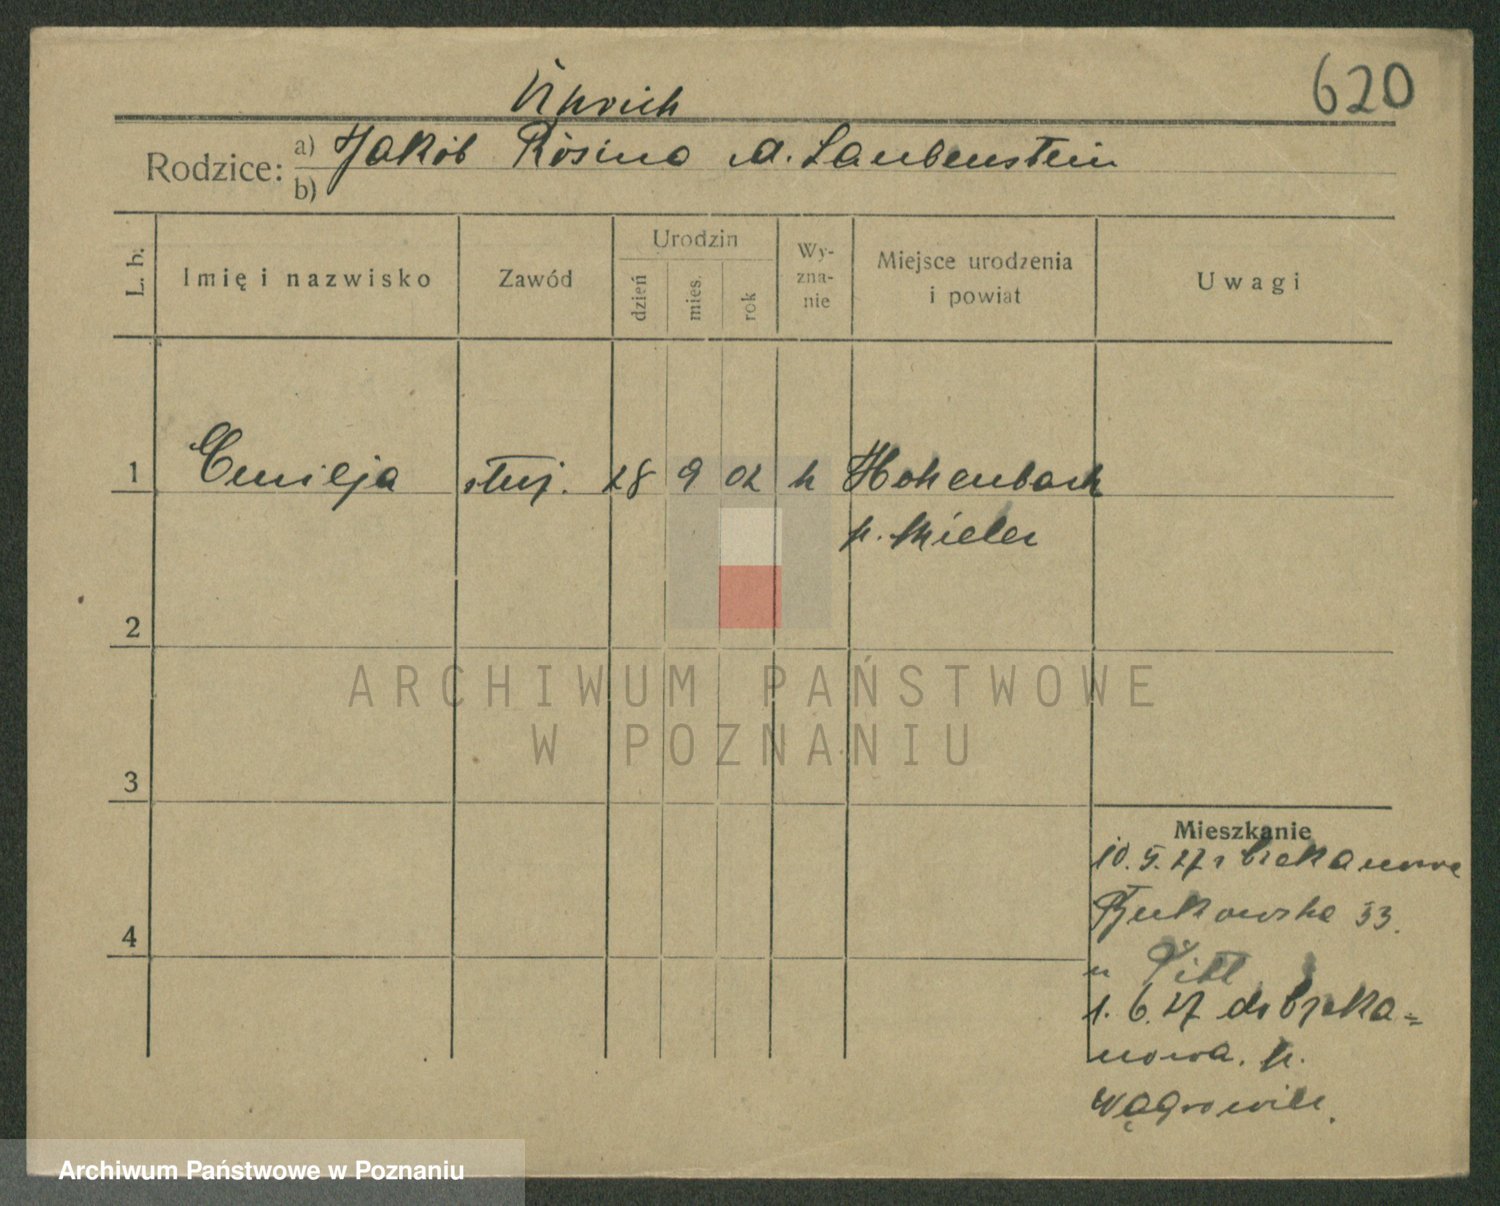 620
Rodzice: a) Jakób Rosina d. Laubenstein
b)
L. b.
Imię i nazwisko
Zawód
Urodzin
dzień
mies.
rok
Wy-
zna-
nie
Miejsce urodzenia
i powiat
Uwagi
1 Emilja służ. 28 9 02 Hohenbach
p. Mielec
2
ARCHIWUM PAŃSTWOWE
W POZNANIU
3
Mieszkanie
10.5.27
Bukowska 33.
4
u
1.6.27 do Brzeka=
nowa. p.
Wągrowiec.
Archiwum Państwowe w Poznaniu